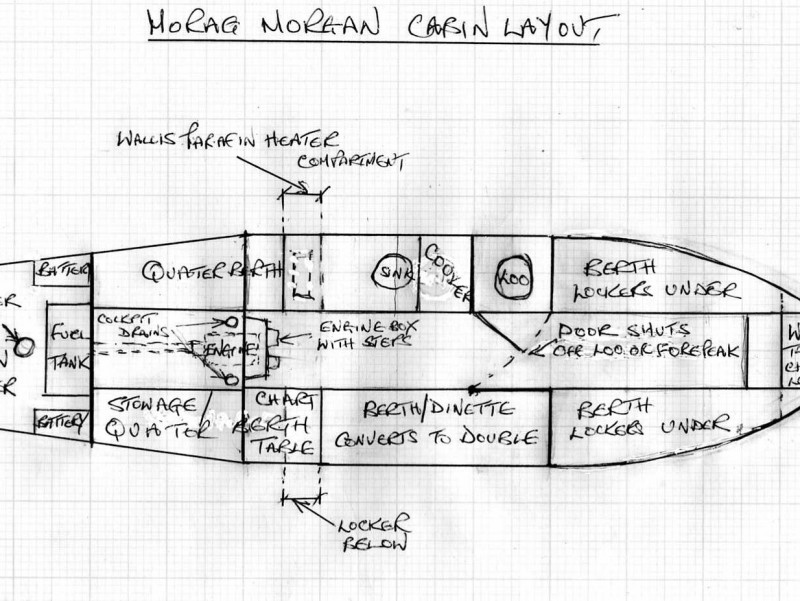 MORAG MORGAN CABIN LAYOUT
WALLIS PARAFIN HEATER
COMPARTMENT
BATTERY
QUATER BERTH
SINK
COOKER
LOO
BERTH
LOCKERS UNDER
COCKPIT
DRAINS
FUEL
TANK
ENGINE
ENGINE BOX
WITH STEPS
DOOR SHUTS
OFF LOO OR FOREPEAK
BATTERY
STOWAGE/
QUATER BERTH
CHART
TABLE
BERTH/DINETTE
CONVERTS TO DOUBLE
BERTH
LOCKERS UNDER
LOCKER
BELOW